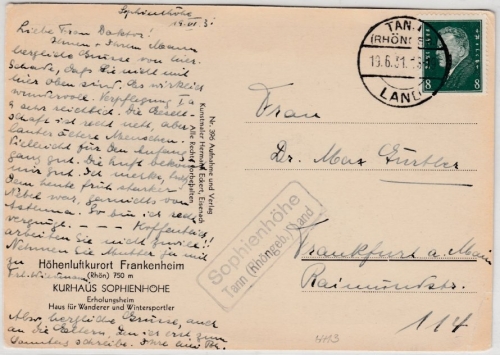 Sophienhöhe
19.VI.31
Liebe Frau Doktor!
Ihnen u. Ihrem Mann
herzliche Grüsse von hier.
Schade, dass Sie nicht mit
hier oben sind. Es ist wirklich
wundervoll. Verpflegung Ia
u. sehr reichlich. Die Gesell-
schaft ist recht nett, aber
lauter ältere Menschen.
Vielleicht für den Anfang
ganz gut. Die Luft bekommt
mir gut. Ich merke, trotz
dem heute früh starker
Nebel war, garnichts von
Asthma. So bin ich sehr
vergnügt. – – – Hoffentlich
arbeiten Sie nicht zuviel!
Nehmen Sie Mutter zu mir
zu
Höhenluftkurort Frankenheim
(Rhön) 750 m
KURHAUS SOPHIENHÖHE
Erholungsheim
Haus für Wanderer und Wintersportler
Also, herzliche Grüsse, auch
an die Eltern, den ich erst zum
Sonntag schreibe. Ihre
Nr. 396 Aufnahme und Verlag
Kunstmaler Hermann Eckert, Eisenach
Alle Rechte vorbehalten
TANN
(RHÖNGEB.)
19.6.31
LAND
8 8
Sophienhöhe
Tann (Rhöngeb.) Land
Frau
Dr. Max Gürtler
Frankfurt a. Main
Raimundstr.
114